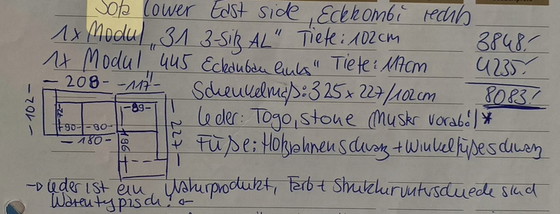 Sofa lower East side, Eckkombi rechts
1x Modul „31 3-Sitz AL" Tiefe: 102cm 3848.-
1x Modul „445 Eckanbau links" Tiefe: 117cm 4235.-
Schenkelmaß: 325 x 227/102cm 8083.-
Leder: Togo, stone (Muster vorab!) *
Füße: Holzrahmen schwarz + Winkelfüße schwarz
-> Leder ist ein Naturprodukt, Farb + Strukturunterschiede sind
Warentypisch! <-
- 208 - - 117 -
- 102 -
12
- 90 - - 90 -
- 180 -
- 89 -
196
- 227 -